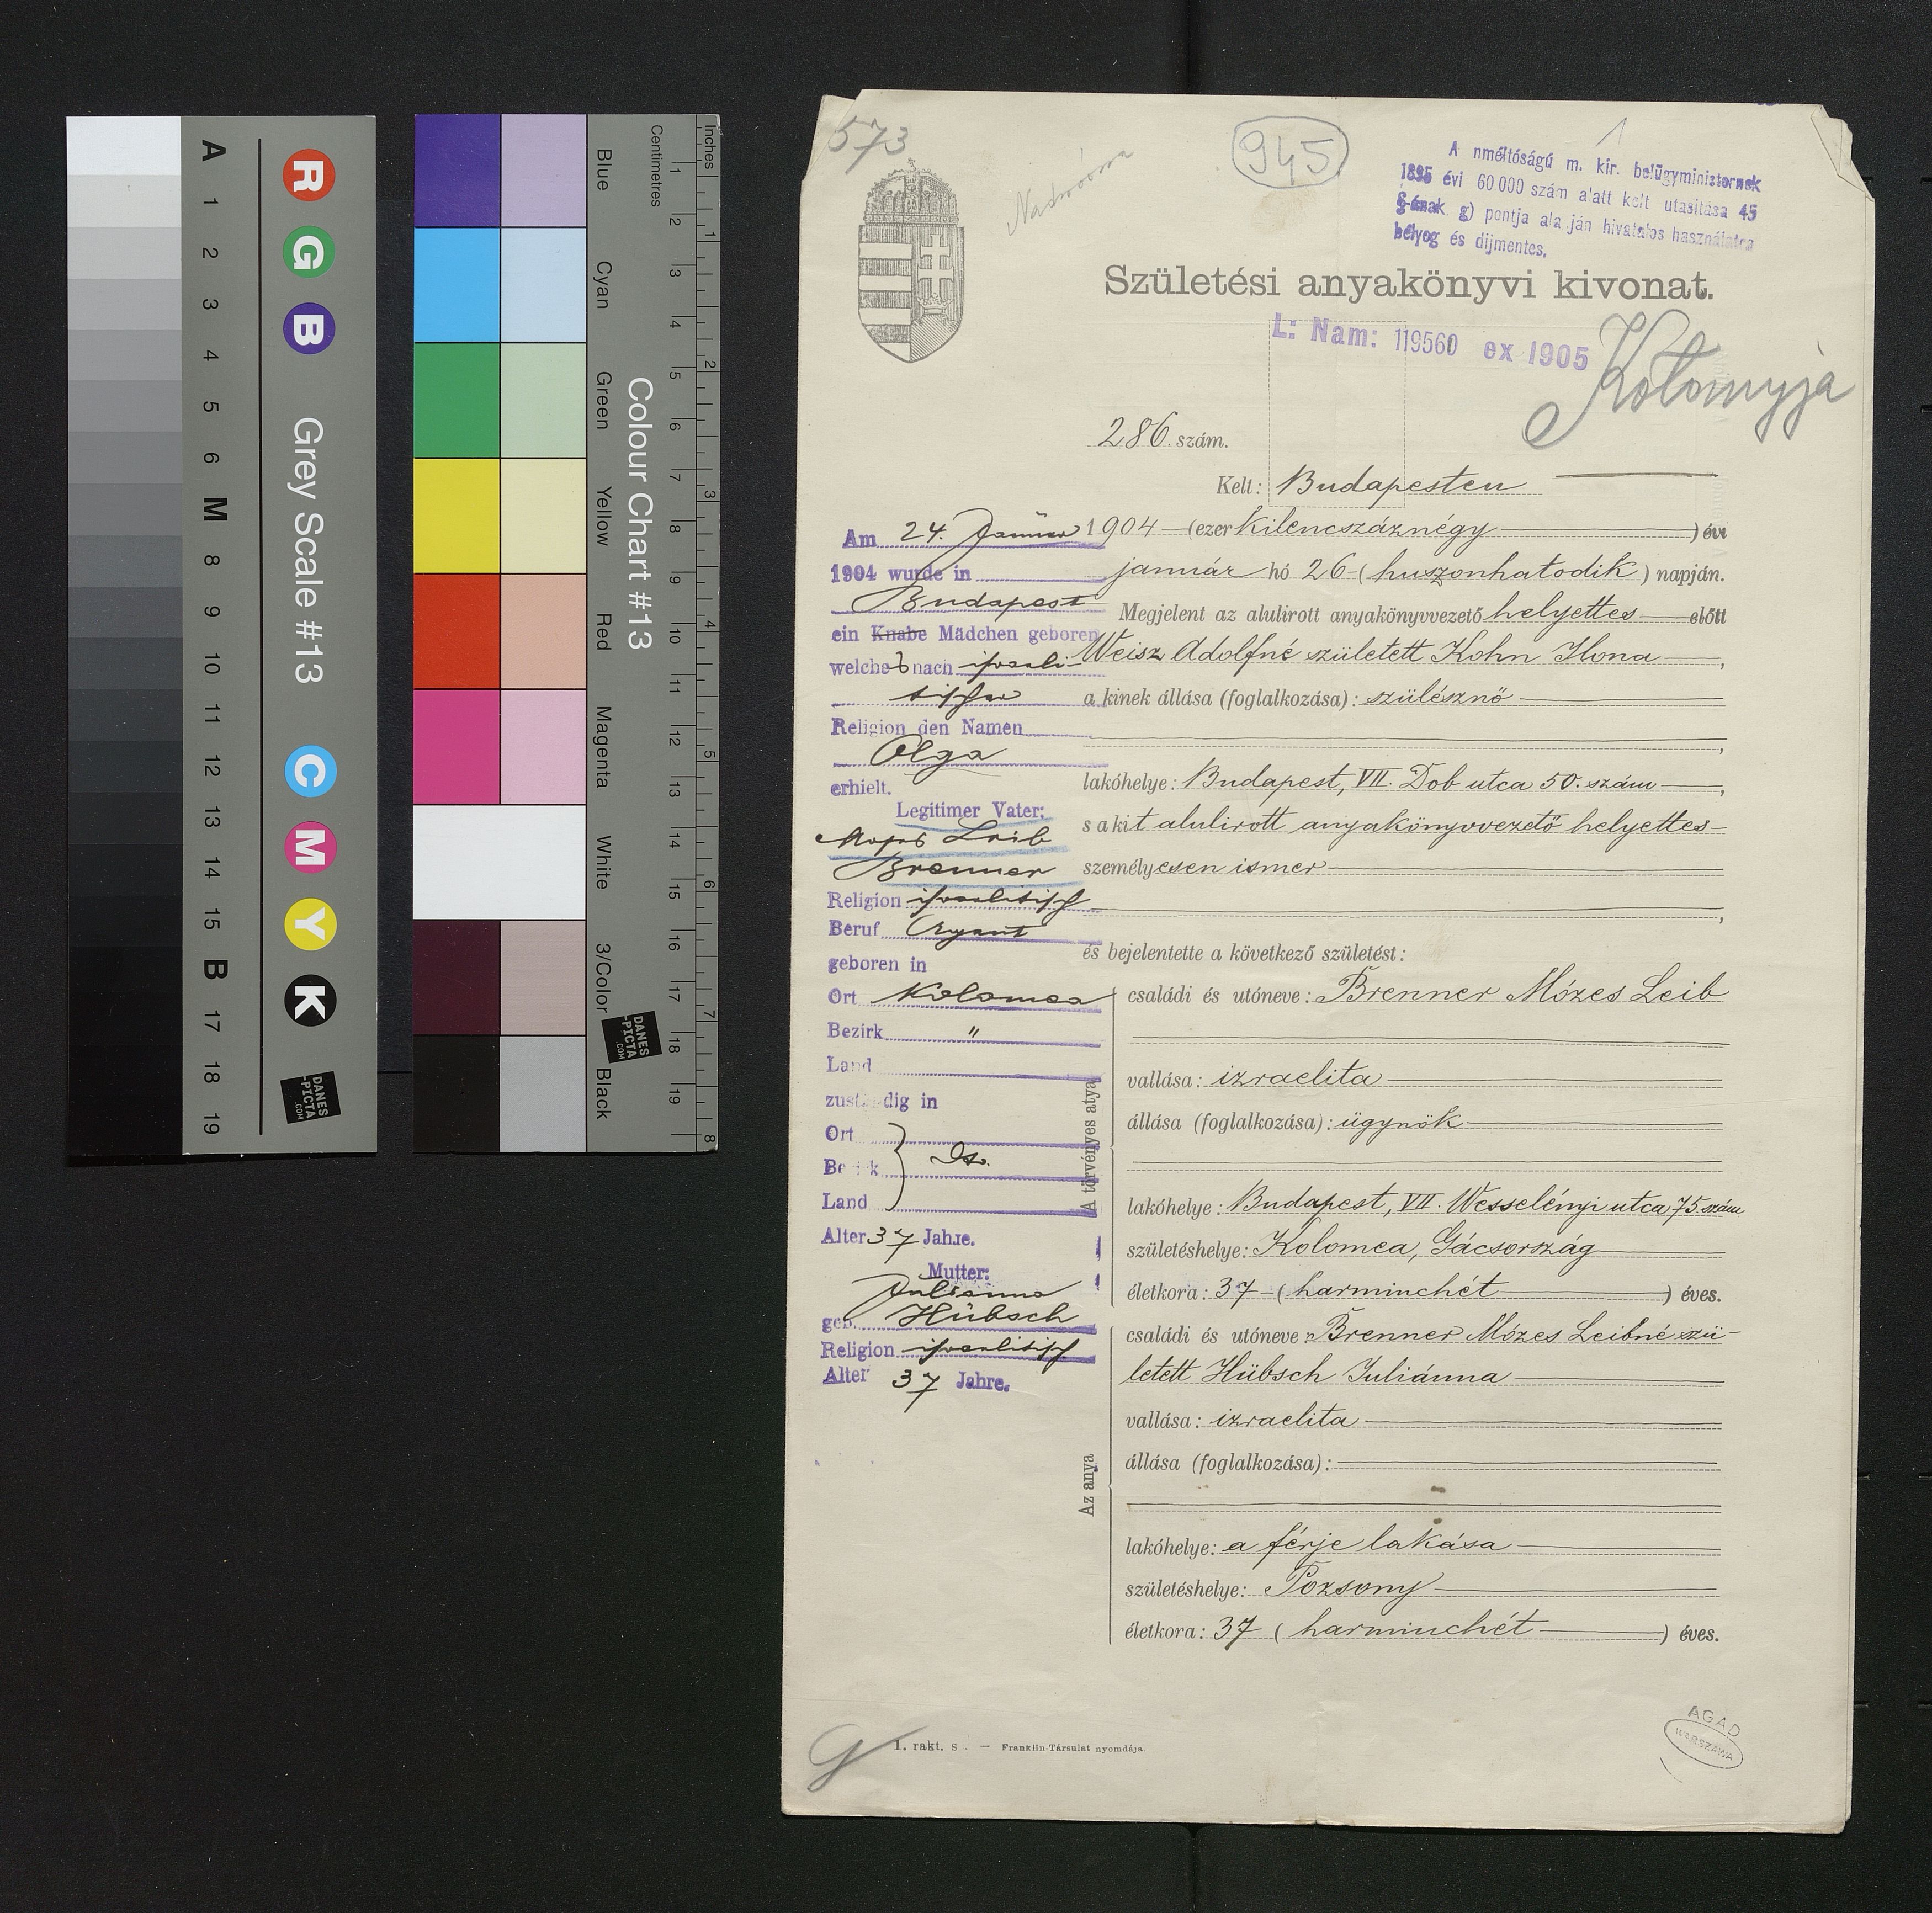 573
945
A nméltóságú m. kir. belügyministernek
1895 évi 60000 szám alatt kelt utasitása 45
§-ának g) pontja alapján hivatalos használatra
bélyeg és dijmentes.
Születési anyakönyvi kivonat.
L: Nam: 119560 ex 1905
Kołomyja
286. szám.
Kelt: Budapesten
1904 (ezer kilencszáznégy) évi
január hó 26 (huszonhatodik) napján.
Megjelent az alulirott anyakönyvvezető helyettes előtt
Weisz Adolfné született Kohn Ilona,
a kinek állása (foglalkozása): szülésznő
,
lakóhelye: Budapest, VII. Dob utca 50. szám,
s a kit alulirott anyakönyvvezető helyettes
személyesen ismer
,
és bejelentette a következő születést:
A törvényes atya
családi és utóneve: Brenner Mózes Leib
vallása: izraelita
állása (foglalkozása): ügynök
lakóhelye: Budapest, VII. Wesselényi utca 75 szám
születéshelye: Kolomea, Gácsország
életkora: 37 (harminchét) éves.
Az anya
családi és utóneve: Brenner Mózes Leibné szü-
letett Hübsch Juliánna
vallása: izraelita
állása (foglalkozása):
lakóhelye: a férje lakása
születéshelye: Pozsony
életkora: 37 (harminchét) éves.
Am 24. Jänner
1904 wurde in
Budapest
ein Knabe Mädchen geboren
welches nach israeli-
tischer
Religion den Namen
Olga
erhielt.
Legitimer Vater:
Moses Leib
Brenner
Religion israelitisch
Beruf Agent
geboren in
Ort Kolomea
Bezirk "
Land
zuständig in
Ort
Bezirk } Do.
Land
Alter 37 Jahre.
Mutter:
Julianna
geb. Hübsch
Religion israelitisch
Alter 37 Jahre.
1. rakt. s. — Franklin-Társulat nyomdája.
AGAD
WARSZAWA
A
1
2
3
4
5
6
M
8
9
10
11
12
13
14
15
B
17
18
19
R G B
Grey Scale #13
C M Y K
DANES
-PICTA
.COM
Blue
Cyan
Green
Yellow
Red
Magenta
White
3/Color
Black
Colour Chart #13
DANES
-PICTA
.COM
Centimetres
1 2 3 4 5 6 7 8 9 10 11 12 13 14 15 16 17 18 19
Inches
1 2 3 4 5 6 7 8